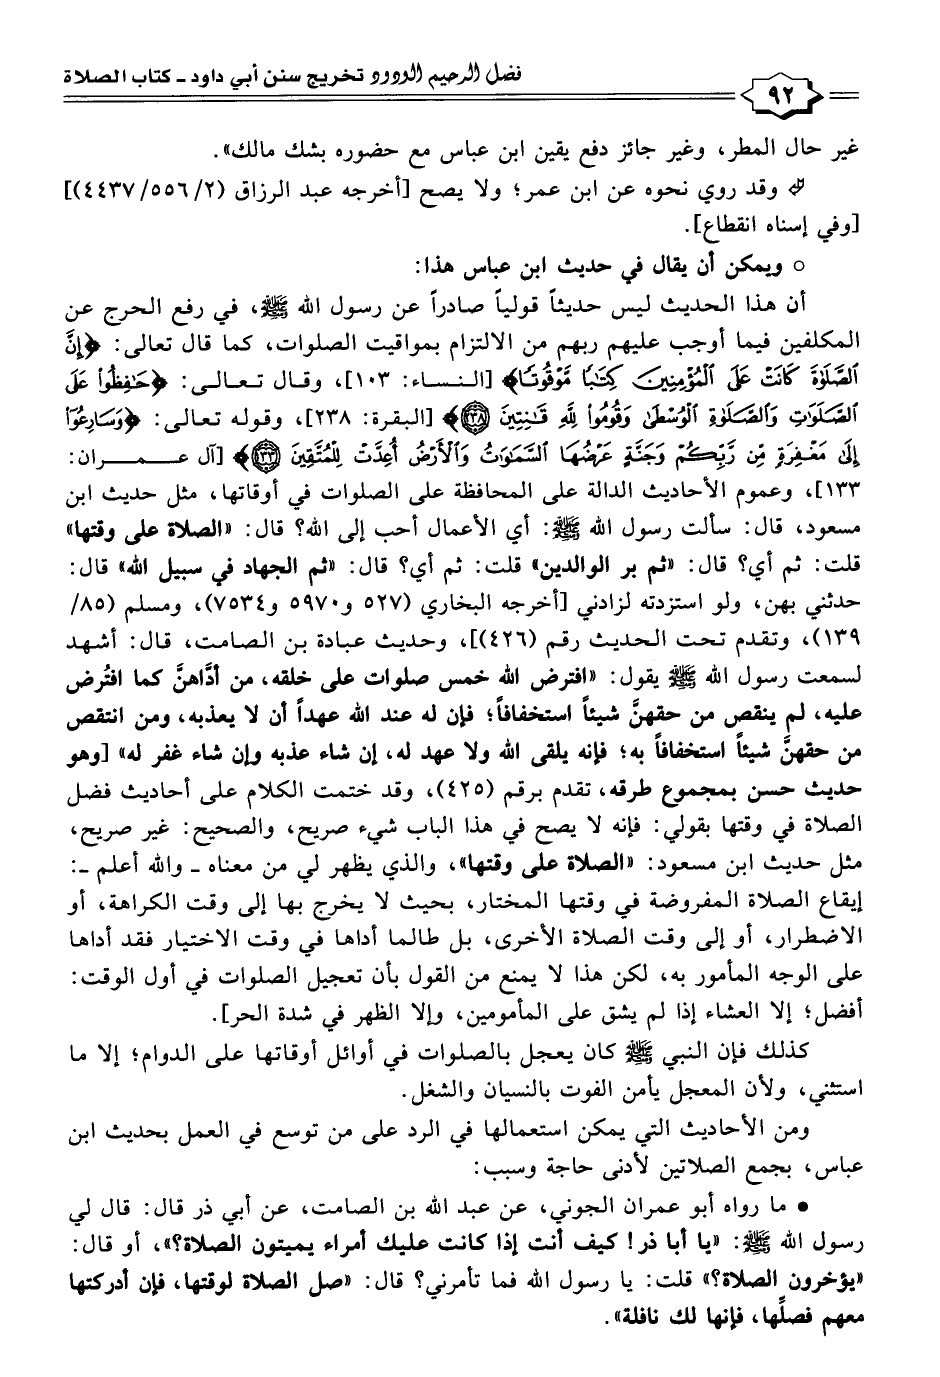 فضل الرحيم الودود تخريج سنن أبي داود - كتاب الصلاة
٩٢
غير حال المطر، وغير جائز دفع يقين ابن عباس مع حضوره بشك مالك».
وقد روي نحوه عن ابن عمر؛ ولا يصح [أخرجه عبد الرزاق (٢/ ٥٥٦/ ٤٤٣٧)]
[وفي إسناه انقطاع].
○ ويمكن أن يقال في حديث ابن عباس هذا:
أن هذا الحديث ليس حديثاً قولياً صادراً عن رسول الله ﷺ، في رفع الحرج عن
المكلفين فيما أوجب عليهم ربهم من الالتزام بمواقيت الصلوات، كما قال تعالى: ﴿إِنَّ
ٱلصَّلَوٰةَ كَانَتْ عَلَى ٱلْمُؤْمِنِينَ كِتَٰبًا مَّوْقُوتًا﴾ [النساء: ١٠٣]، وقال تعالى: ﴿حَٰفِظُوا۟ عَلَى
ٱلصَّلَوَٰتِ وَٱلصَّلَوٰةِ ٱلْوُسْطَىٰ وَقُومُوا۟ لِلَّهِ قَٰنِتِينَ ۝٢٣٨﴾ [البقرة: ٢٣٨]، وقوله تعالى: ﴿وَسَارِعُوٓا۟
إِلَىٰ مَغْفِرَةٍ مِّن رَّبِّكُمْ وَجَنَّةٍ عَرْضُهَا ٱلسَّمَٰوَٰتُ وَٱلْأَرْضُ أُعِدَّتْ لِلْمُتَّقِينَ ۝١٣٣﴾ [آل عمران:
١٣٣]، وعموم الأحاديث الدالة على المحافظة على الصلوات في أوقاتها، مثل حديث ابن
مسعود، قال: سألت رسول الله ﷺ: أي الأعمال أحب إلى الله؟ قال: «الصلاة على وقتها»
قلت: ثم أي؟ قال: «ثم بر الوالدين» قلت: ثم أي؟ قال: «ثم الجهاد في سبيل الله» قال:
حدثني بهن، ولو استزدته لزادني [أخرجه البخاري (٥٢٧ و٥٩٧٠ و٧٥٣٤)، ومسلم (٨٥/
١٣٩)، وتقدم تحت الحديث رقم (٤٢٦)]، وحديث عبادة بن الصامت، قال: أشهد
لسمعت رسول الله ﷺ يقول: «افترض الله خمس صلوات على خلقه، من أدَّاهنَّ كما افتُرض
عليه، لم ينقص من حقهنَّ شيئاً استخفافاً؛ فإن له عند الله عهداً أن لا يعذبه، ومن انتقص
من حقهنَّ شيئاً استخفافاً به؛ فإنه يلقى الله ولا عهد له، إن شاء عذبه وإن شاء غفر له» [وهو
حديث حسن بمجموع طرقه، تقدم برقم (٤٢٥)، وقد ختمت الكلام على أحاديث فضل
الصلاة في وقتها بقولي: فإنه لا يصح في هذا الباب شيء صريح، والصحيح: غير صريح،
مثل حديث ابن مسعود: «الصلاة على وقتها»، والذي يظهر لي من معناه ـ والله أعلم ـ:
إيقاع الصلاة المفروضة في وقتها المختار، بحيث لا يخرج بها إلى وقت الكراهة، أو
الاضطرار، أو إلى وقت الصلاة الأخرى، بل طالما أداها في وقت الاختيار فقد أداها
على الوجه المأمور به، لكن هذا لا يمنع من القول بأن تعجيل الصلوات في أول الوقت:
أفضل؛ إلا العشاء إذا لم يشق على المأمومين، وإلا الظهر في شدة الحر].
كذلك فإن النبي ﷺ كان يعجل بالصلوات في أوائل أوقاتها على الدوام؛ إلا ما
استثني، ولأن المعجل يأمن الفوت بالنسيان والشغل.
ومن الأحاديث التي يمكن استعمالها في الرد على من توسع في العمل بحديث ابن
عباس، بجمع الصلاتين لأدنى حاجة وسبب:
• ما رواه أبو عمران الجوني، عن عبد الله بن الصامت، عن أبي ذر قال: قال لي
رسول الله ﷺ: «يا أبا ذر! كيف أنت إذا كانت عليك أمراء يميتون الصلاة؟»، أو قال:
«يؤخرون الصلاة؟» قلت: يا رسول الله فما تأمرني؟ قال: «صل الصلاة لوقتها، فإن أدركتها
معهم فصلِّها، فإنها لك نافلة».